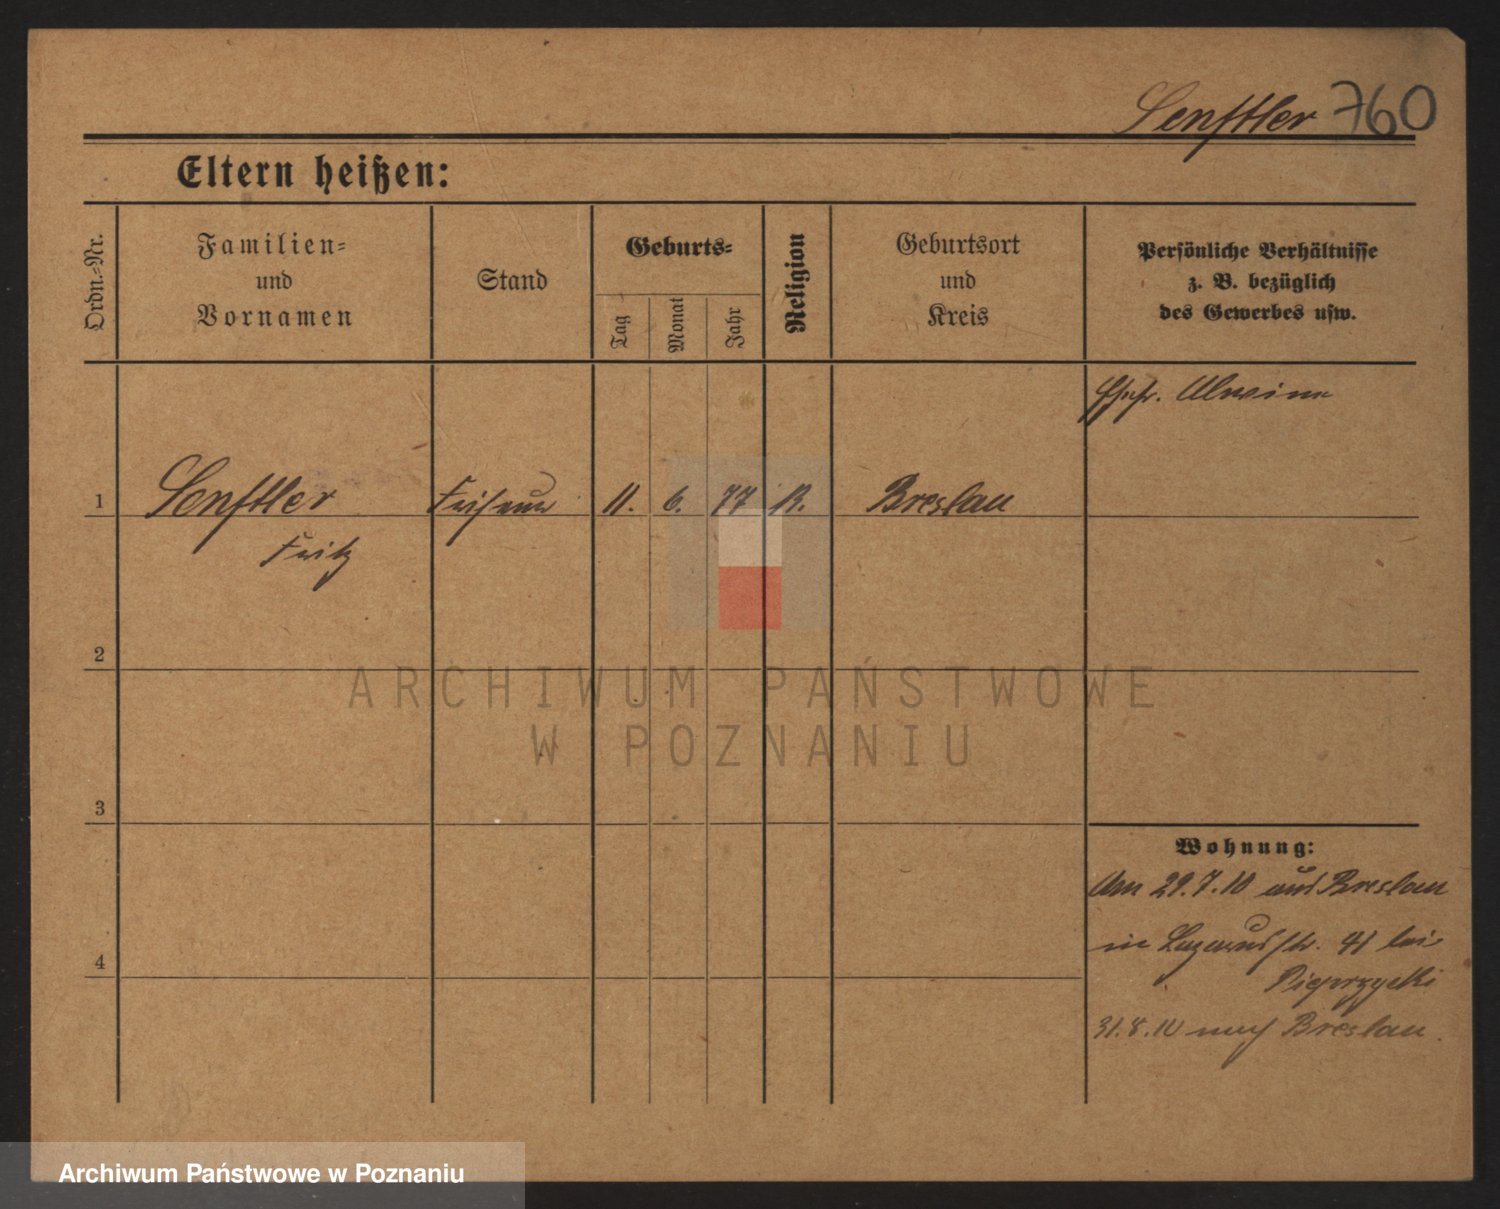 Senftler 760
Eltern heißen:
Ordn.-Nr.
Familien-
und
Vornamen
Stand
Geburts-
Tag
Monat
Jahr
Religion
Geburtsort
und
Kreis
Persönliche Verhältnisse
z. B. bezüglich
des Gewerbes usw.
Ehefr. Alwine
1 Senftler Friseur 11. 6. 77 Breslau
Fritz
2
3
4
Wohnung:
Am 29.7.10 aus Breslau
in Lazarusstr. 41 bei
31.8.10 nach Breslau.
ARCHIWUM PAŃSTWOWE
W POZNANIU
Archiwum Państwowe w Poznaniu